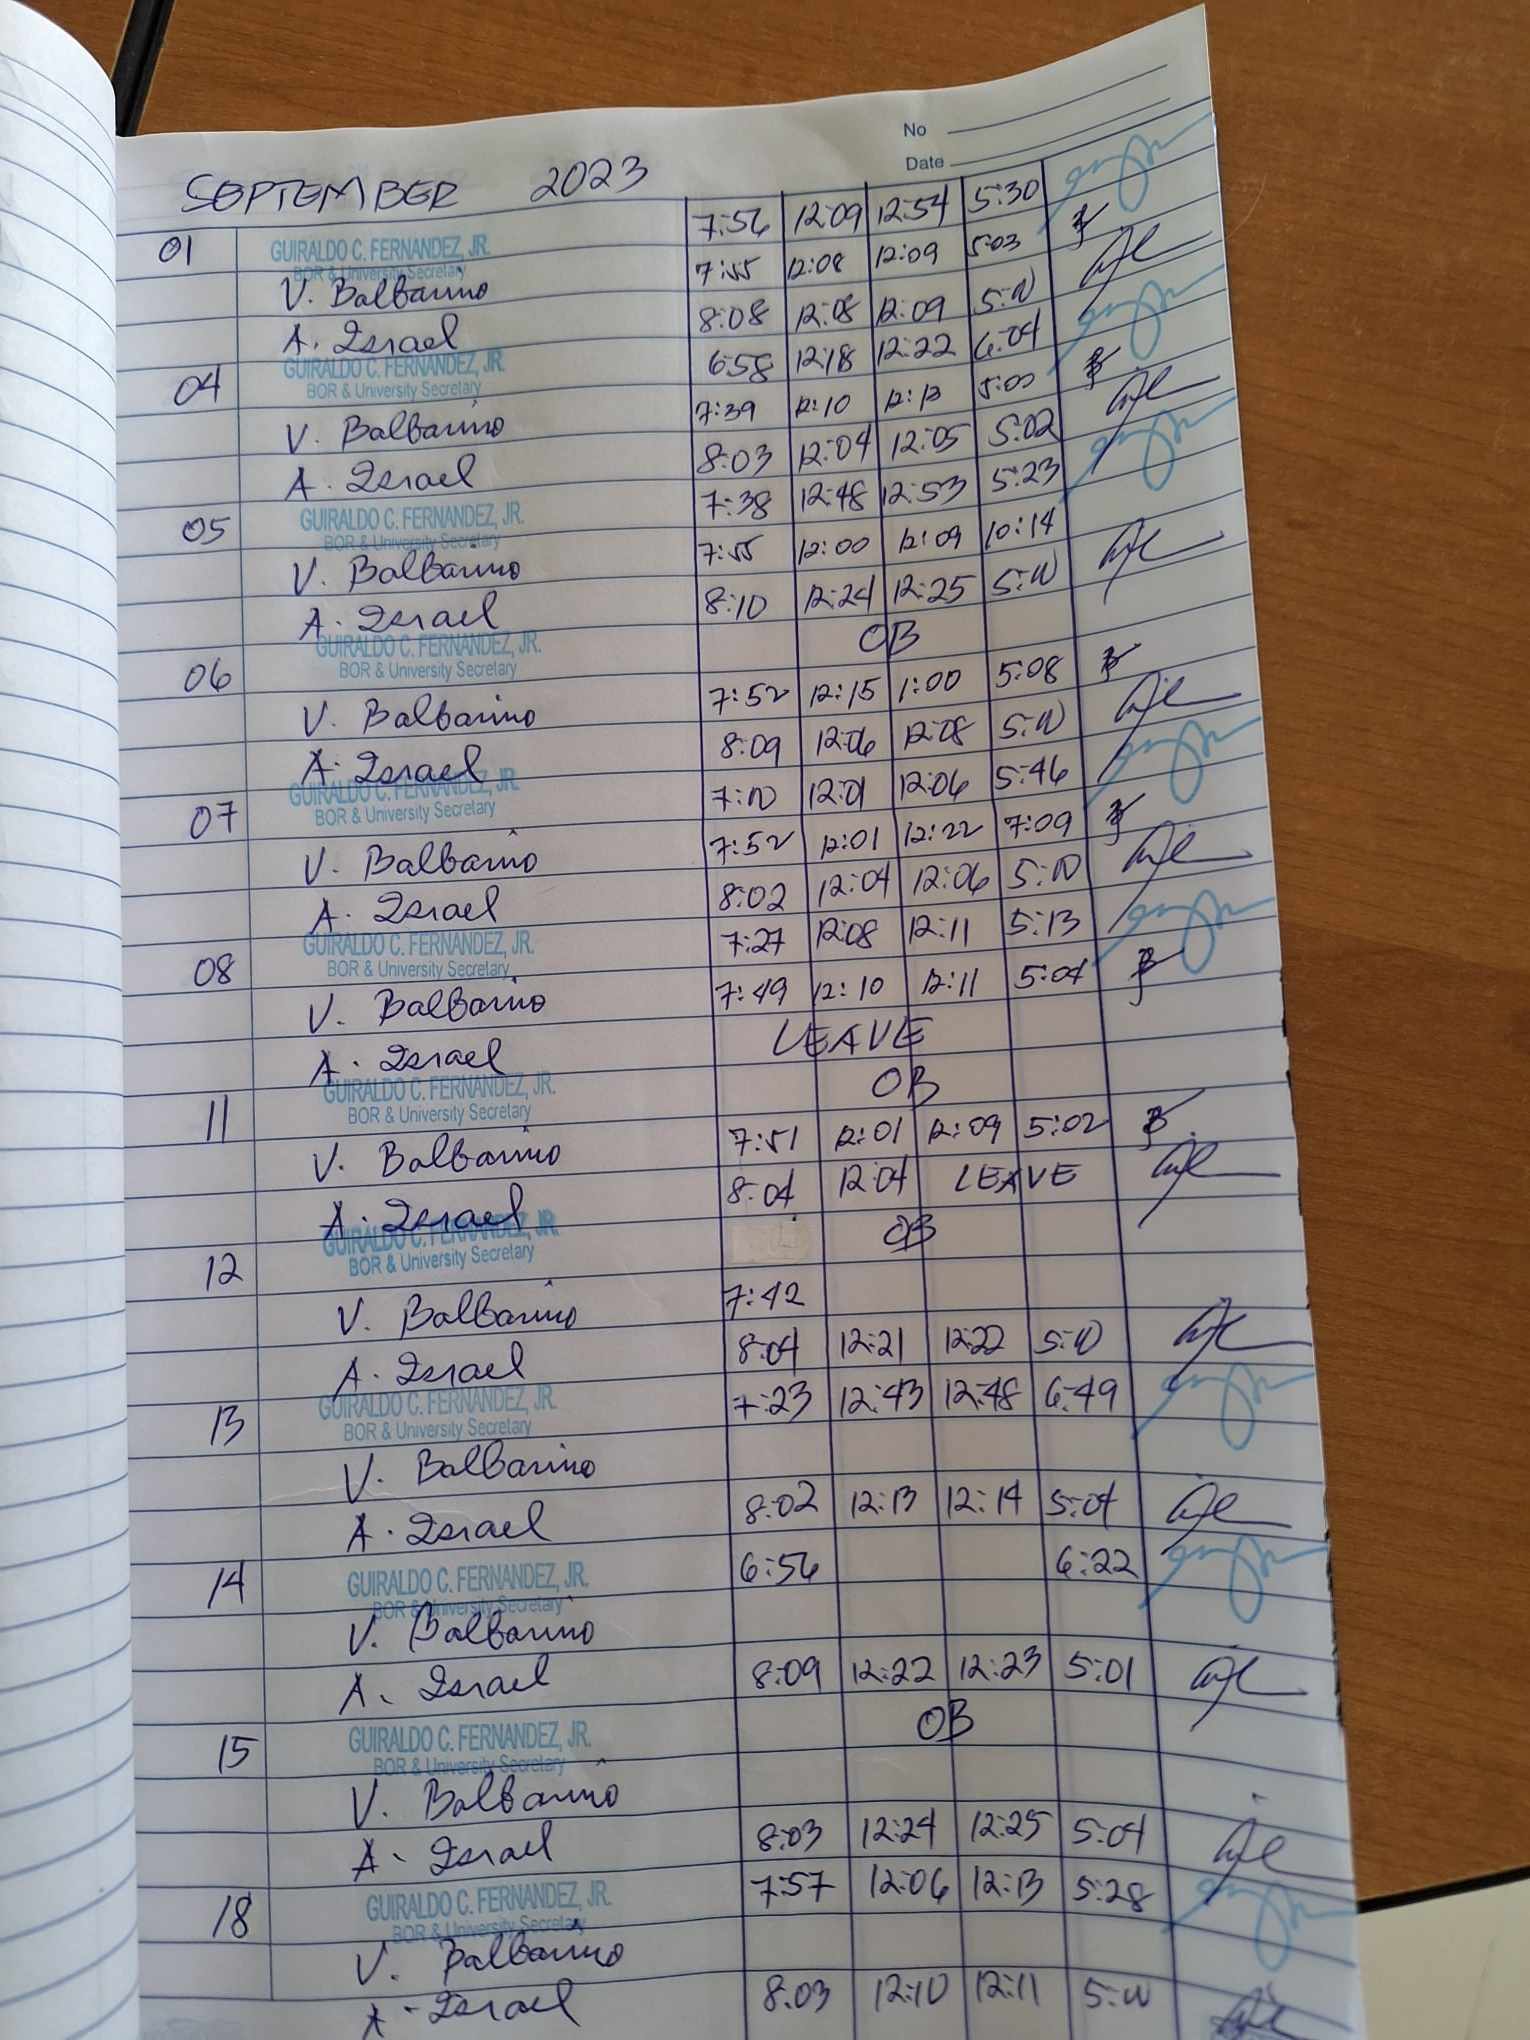 No
Date
SEPTEMBER 2023
01 GUIRALDO C. FERNANDEZ, JR. 7:56 12:09 12:54 5:30
BOR & University Secretary
V. Balbarino 7:55 12:08 12:09 5:03
A. Israel 8:08 12:08 12:09 5:00
04 GUIRALDO C. FERNANDEZ, JR. 6:58 12:18 12:22 6:04
BOR & University Secretary
V. Balbarino 7:39 12:10 12:13 5:00
A. Israel 8:03 12:04 12:05 5:02
05 GUIRALDO C. FERNANDEZ, JR. 7:38 12:48 12:53 5:23
BOR & University Secretary
V. Balbarino 7:55 12:00 12:09 10:14
A. Israel 8:10 12:24 12:25 5:00
06 GUIRALDO C. FERNANDEZ, JR. OB
BOR & University Secretary
V. Balbarino 7:52 12:15 1:00 5:08
A. Israel 8:09 12:06 12:08 5:00
07 GUIRALDO C. FERNANDEZ, JR. 7:00 12:01 12:06 5:46
BOR & University Secretary
V. Balbarino 7:52 12:01 12:22 7:09
A. Israel 8:02 12:04 12:06 5:00
08 GUIRALDO C. FERNANDEZ, JR. 7:27 12:08 12:11 5:13
BOR & University Secretary
V. Balbarino 7:49 12:10 12:11 5:04
A. Israel LEAVE
11 GUIRALDO C. FERNANDEZ, JR. OB
BOR & University Secretary
V. Balbarino 7:51 12:01 12:09 5:02
A. Israel 8:04 12:04 LEAVE
12 GUIRALDO C. FERNANDEZ, JR. OB
BOR & University Secretary
V. Balbarino 7:42
A. Israel 8:04 12:21 12:22 5:00
13 GUIRALDO C. FERNANDEZ, JR. 7:23 12:43 12:48 6:49
BOR & University Secretary
V. Balbarino
A. Israel 8:02 12:13 12:14 5:04
14 GUIRALDO C. FERNANDEZ, JR. 6:56 6:22
BOR & University Secretary
V. Balbarino
A. Israel 8:09 12:22 12:23 5:01
15 GUIRALDO C. FERNANDEZ, JR. OB
BOR & University Secretary
V. Balbarino
A. Israel 8:03 12:24 12:25 5:04
18 GUIRALDO C. FERNANDEZ, JR. 7:57 12:06 12:13 5:28
BOR & University Secretary
V. Balbarino
A. Israel 8:03 12:10 12:11 5:00